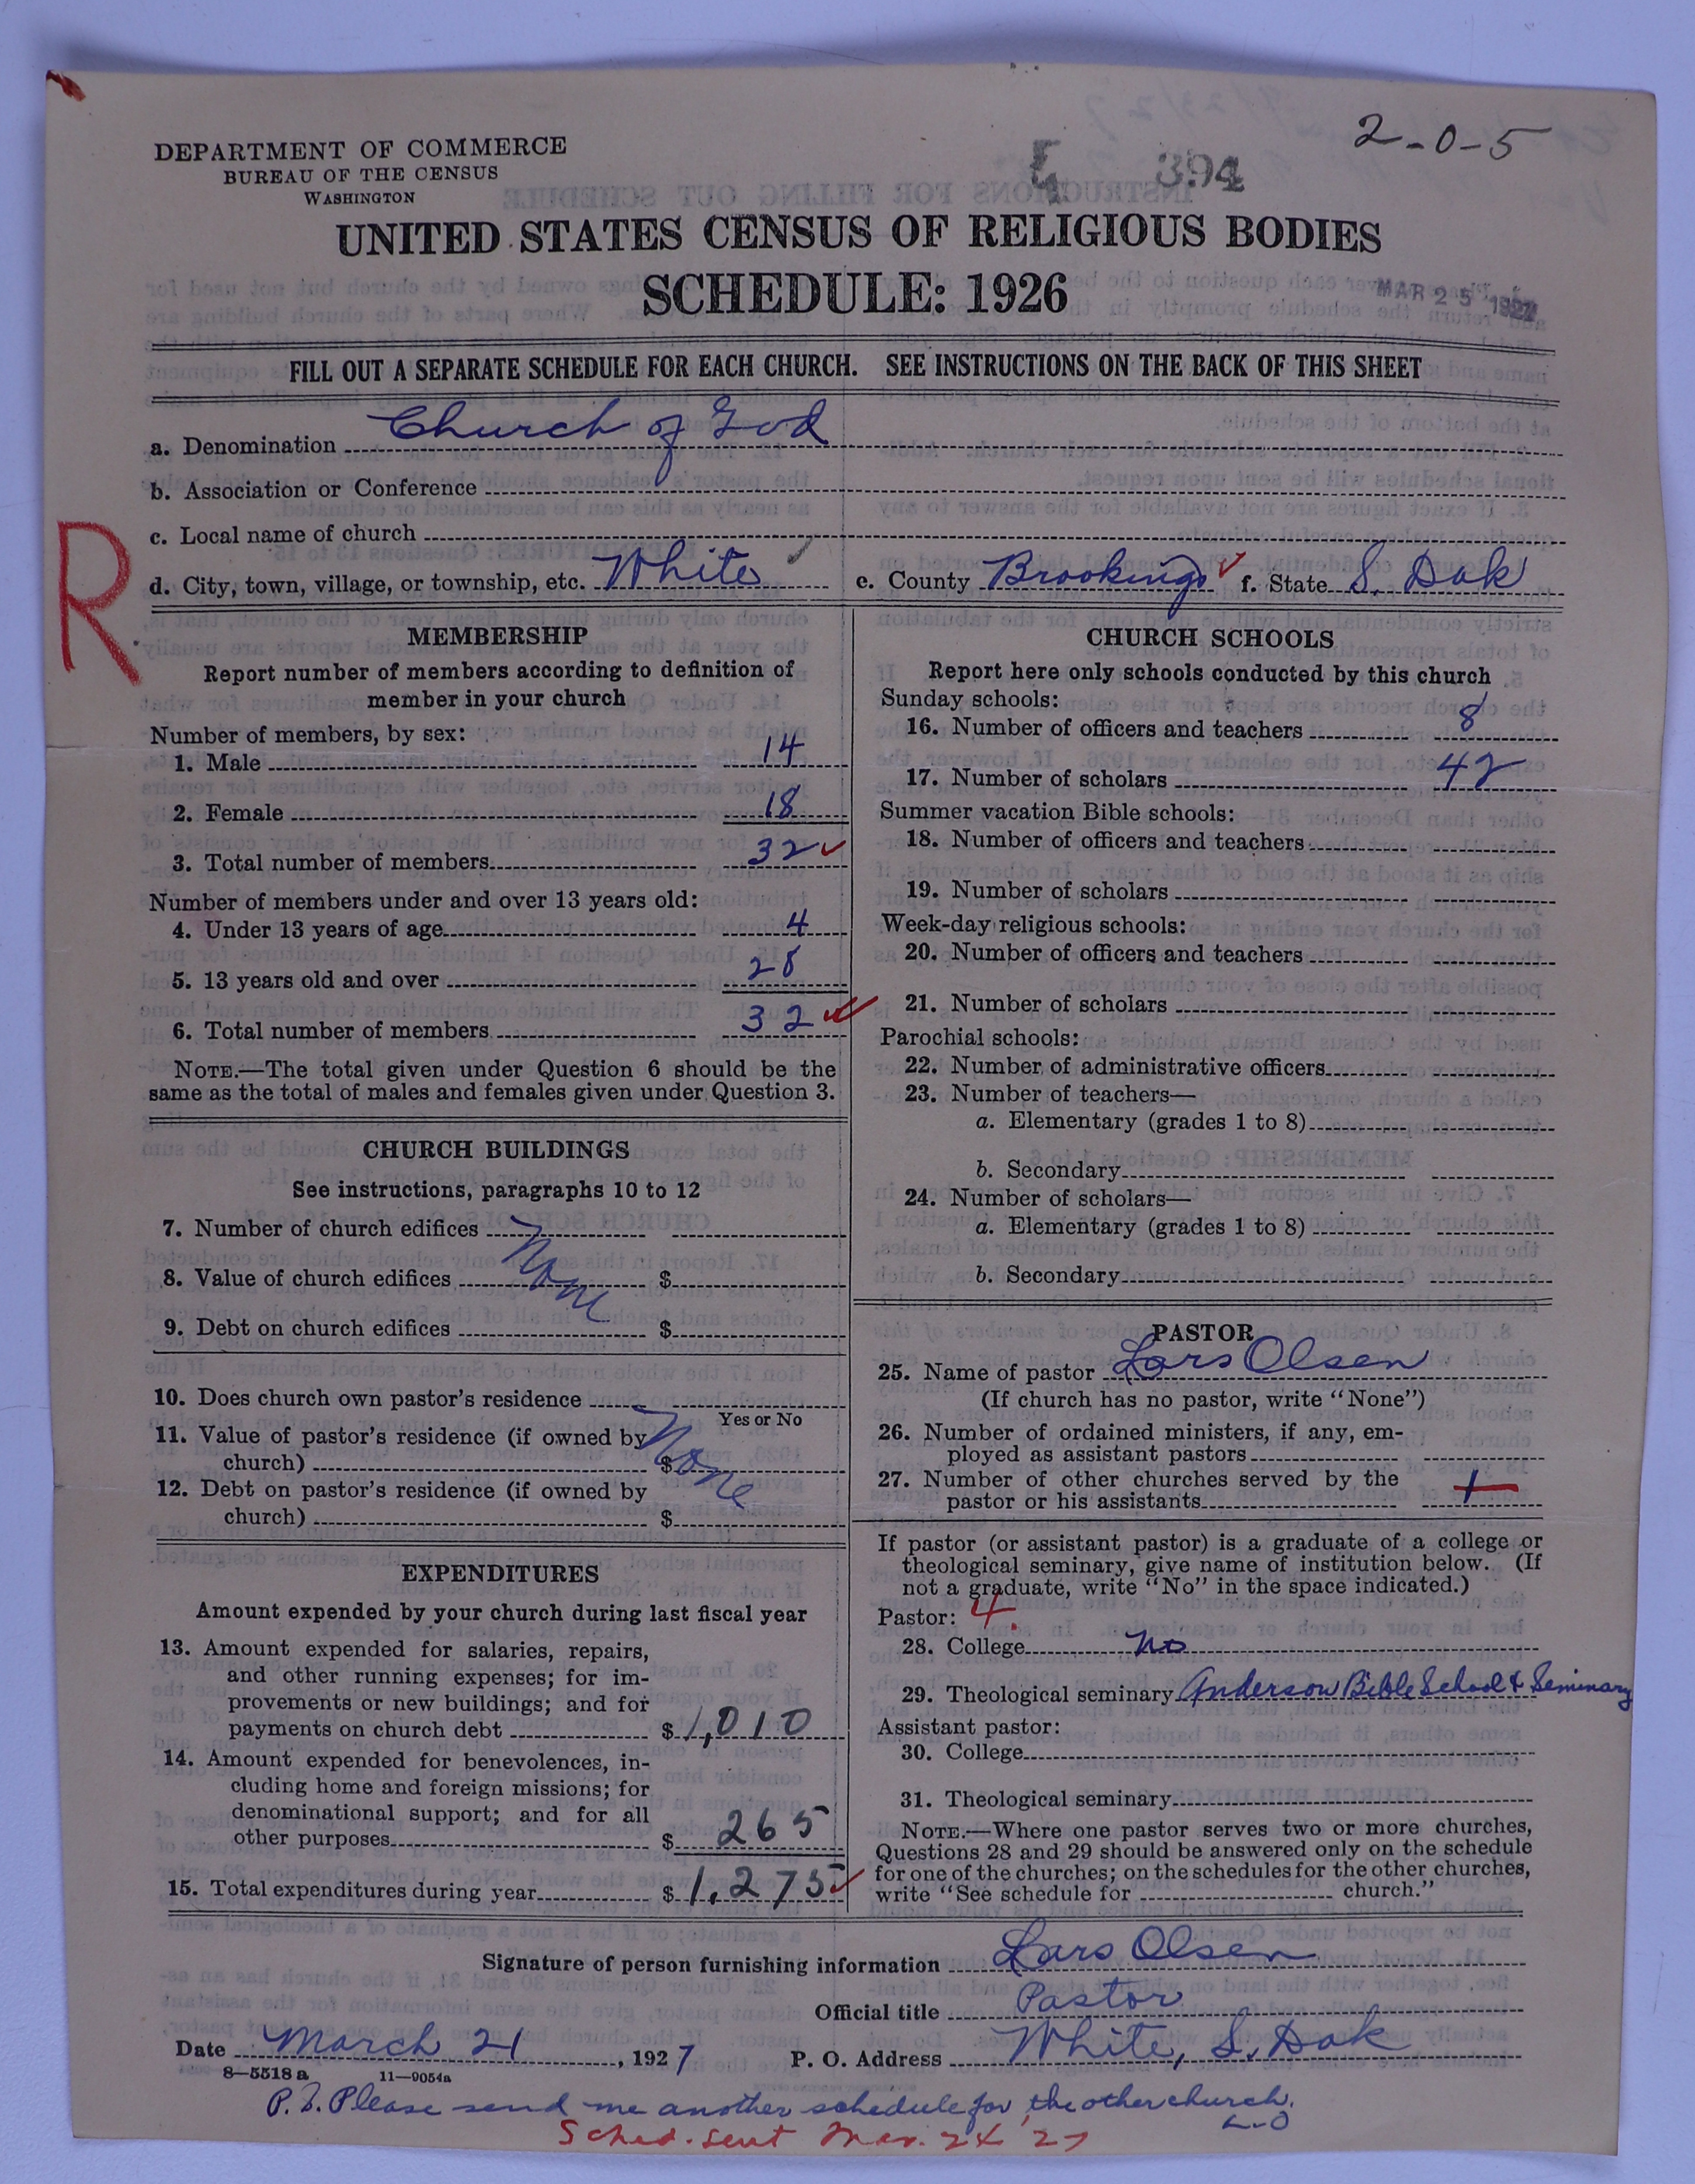 2-0-5
DEPARTMENT OF COMMERCE
BUREAU OF THE CENSUS
WASHINGTON
394
UNITED STATES CENSUS OF RELIGIOUS BODIES
SCHEDULE: 1926
MAR 25 1927
FILL OUT A SEPARATE SCHEDULE FOR EACH CHURCH. SEE INSTRUCTIONS ON THE BACK OF THIS SHEET
a. Denomination Church of God
b. Association or Conference
c. Local name of church
R
d. City, town, village, or township, etc. White e. County Brookings f. State S. Dak
MEMBERSHIP
Report number of members according to definition of
member in your church
Number of members, by sex:
1. Male 14
2. Female 18
3. Total number of members 32
Number of members under and over 13 years old:
4. Under 13 years of age 4
5. 13 years old and over 28
6. Total number of members 32
NOTE.—The total given under Question 6 should be the
same as the total of males and females given under Question 3.
CHURCH BUILDINGS
See instructions, paragraphs 10 to 12
7. Number of church edifices
None
8. Value of church edifices $
9. Debt on church edifices $
10. Does church own pastor's residence
Yes or No
None
11. Value of pastor's residence (if owned by
church) $
12. Debt on pastor's residence (if owned by
church) $
EXPENDITURES
Amount expended by your church during last fiscal year
13. Amount expended for salaries, repairs,
and other running expenses; for im-
provements or new buildings; and for
payments on church debt $ 1,010
14. Amount expended for benevolences, in-
cluding home and foreign missions; for
denominational support; and for all
other purposes $ 265
15. Total expenditures during year $ 1,275
CHURCH SCHOOLS
Report here only schools conducted by this church
Sunday schools:
16. Number of officers and teachers 8
17. Number of scholars 42
Summer vacation Bible schools:
18. Number of officers and teachers
19. Number of scholars
Week-day religious schools:
20. Number of officers and teachers
21. Number of scholars
Parochial schools:
22. Number of administrative officers
23. Number of teachers—
a. Elementary (grades 1 to 8)
b. Secondary
24. Number of scholars—
a. Elementary (grades 1 to 8)
b. Secondary
PASTOR
25. Name of pastor Lars Olsen
(If church has no pastor, write "None")
26. Number of ordained ministers, if any, em-
ployed as assistant pastors
27. Number of other churches served by the
pastor or his assistants 1
If pastor (or assistant pastor) is a graduate of a college or
theological seminary, give name of institution below. (If
not a graduate, write "No" in the space indicated.)
Pastor: 4.
28. College no
29. Theological seminary Anderson Bible School & Seminary
Assistant pastor:
30. College
31. Theological seminary
NOTE.—Where one pastor serves two or more churches,
Questions 28 and 29 should be answered only on the schedule
for one of the churches; on the schedules for the other churches,
write "See schedule for church."
Signature of person furnishing information Lars Olsen
Official title Pastor
Date March 21, 1927 P. O. Address White, S. Dak
8-5518 a 11-9054a
P.S. Please send me another schedule for the other church.
L-O
Sched. sent Mar. 24 '27